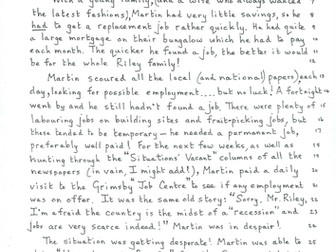 With a young family, (and a wife who always wanted
the latest fashions), Martin had very little savings, so he
had to get a replacement job rather quickly. He had quite 9
a large mortgage on their bungalow which he had to pay 10
each month. The quicker he found a job, the better it would 11
be for the whole Riley family! 12
Martin scoured all the local (and national) papers, each 13
day, looking for possible employment....but no luck! A fortnight 14
went by and he still hadn't found a job. There were plenty of 15
labouring jobs on building sites and fruit-picking jobs, but 16
these tended to be temporary – he needed a permanent job, 17
preferably well paid! For the next few weeks, as well as 18
hunting through the "Situations' Vacant" columns of all the 19
newspapers (in vain, I might add!), Martin paid a daily 20
visit to the Grimsby "Job Centre" to see if any employment 21
was on offer. It was the same old story: "Sorry, Mr. Riley, 22
I'm afraid the country is the midst of a "recession" and 23
jobs are very scarce indeed!" Martin was in despair! 24
The situation was getting desperate! Martin was able to 25